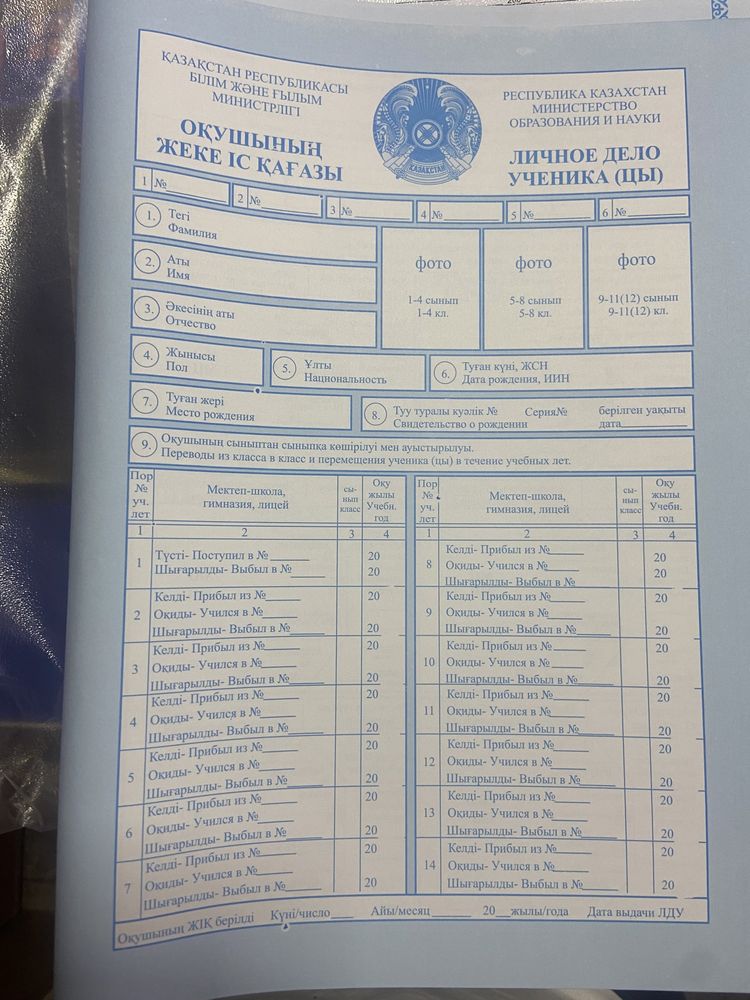 ҚАЗАҚСТАН РЕСПУБЛИКАСЫ
БІЛІМ ЖӘНЕ ҒЫЛЫМ
МИНИСТРЛІГІ
ОҚУШЫНЫҢ
ЖЕКЕ ІС ҚАҒАЗЫ
ҚАЗАҚСТАН
РЕСПУБЛИКА КАЗАХСТАН
МИНИСТЕРСТВО
ОБРАЗОВАНИЯ И НАУКИ
ЛИЧНОЕ ДЕЛО
УЧЕНИКА (ЦЫ)
1 №______ 2 №______ 3 №______ 4 №______ 5 №______ 6 №______
1. Тегі
Фамилия
2. Аты
Имя
3. Әкесінің аты
Отчество
фото
1-4 сынып
1-4 кл.
фото
5-8 сынып
5-8 кл.
фото
9-11(12) сынып
9-11(12) кл.
4. Жынысы
Пол
5. Ұлты
Национальность
6. Туған күні, ЖСН
Дата рождения, ИИН
7. Туған жері
Место рождения
8. Туу туралы куәлік № Серия№ берілген уақыты
Свидетельство о рождении дата______
9. Оқушының сыныптан сыныпқа көшірілуі мен ауыстырылуы.
Переводы из класса в класс и перемещения ученика (цы) в течение учебных лет.
Пор
№
уч.
лет
Мектеп-школа,
гимназия, лицей
сы-
нып
класс
Оқу
жылы
Учебн.
год
1 2 3 4
1 Түсті- Поступил в №______ 20
Шығарылды- Выбыл в №______ 20
2 Келді- Прибыл из №______ 20
Оқиды- Учился в №______
Шығарылды- Выбыл в №______ 20
3 Келді- Прибыл из №______ 20
Оқиды- Учился в №______
Шығарылды- Выбыл в №______ 20
4 Келді- Прибыл из №______ 20
Оқиды- Учился в №______
Шығарылды- Выбыл в №______ 20
5 Келді- Прибыл из №______ 20
Оқиды- Учился в №______
Шығарылды- Выбыл в №______ 20
6 Келді- Прибыл из №______ 20
Оқиды- Учился в №______
Шығарылды- Выбыл в №______ 20
7 Келді- Прибыл из №______ 20
Оқиды- Учился в №______
Шығарылды- Выбыл в №______ 20
Пор
№
уч.
лет
Мектеп-школа,
гимназия, лицей
сы-
нып
класс
Оқу
жылы
Учебн.
год
1 2 3 4
8 Келді- Прибыл из №______ 20
Оқиды- Учился в №______ 20
Шығарылды- Выбыл в №______
9 Келді- Прибыл из №______ 20
Оқиды- Учился в №______
Шығарылды- Выбыл в №______ 20
10 Келді- Прибыл из №______ 20
Оқиды- Учился в №______
Шығарылды- Выбыл в №______ 20
11 Келді- Прибыл из №______ 20
Оқиды- Учился в №______
Шығарылды- Выбыл в №______ 20
12 Келді- Прибыл из №______ 20
Оқиды- Учился в №______
Шығарылды- Выбыл в №______ 20
13 Келді- Прибыл из №______ 20
Оқиды- Учился в №______
Шығарылды- Выбыл в №______ 20
14 Келді- Прибыл из №______ 20
Оқиды- Учился в №______
Шығарылды- Выбыл в №______ 20
Оқушының ЖІҚ берілді Күні/число____ Айы/месяц______ 20__жылы/года Дата выдачи ЛДУ